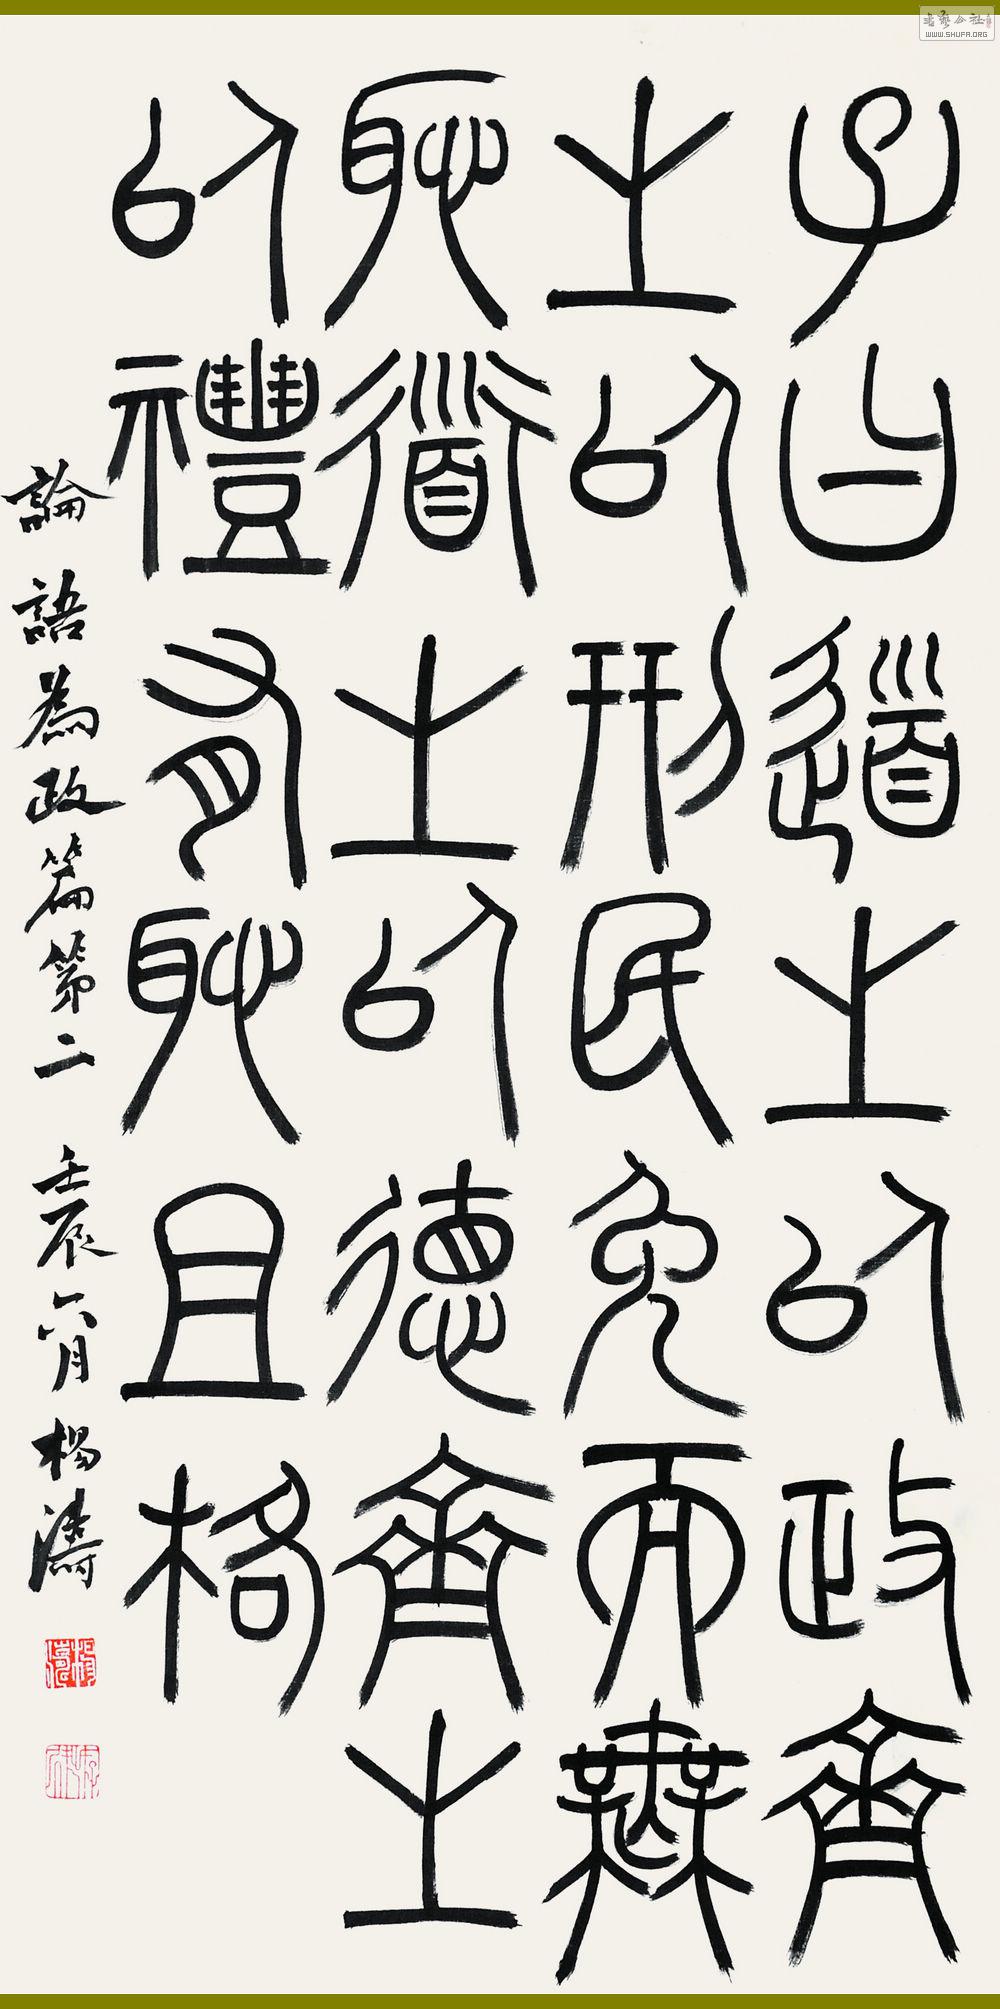 子曰道之以政齊
之以刑民免而無
恥道之以德齊之
以禮有恥且格
論語為政篇第二 壬辰六月 楊濤
书艺公社
WWW.SHUFA.ORG